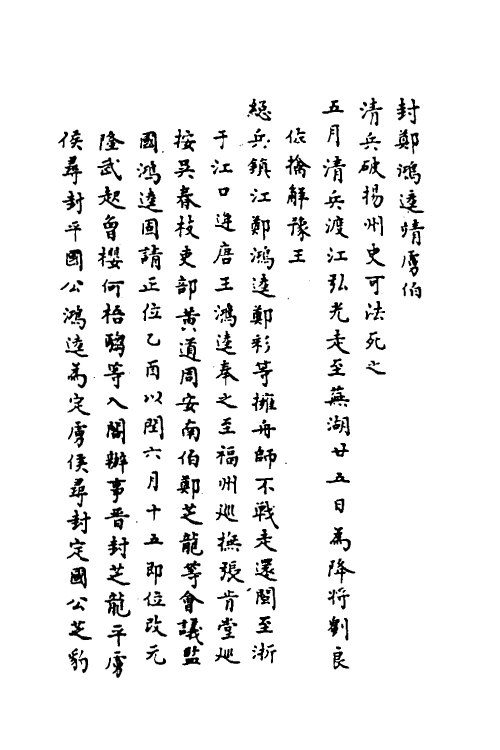 封鄭鴻逵靖虜伯
清兵破揚州史可法死之
五月清兵渡江弘光走至蕪湖廿五日為降将劉良
佐擒解豫王
總兵鎮江鄭鴻逵鄭彩等擁舟師不戰走還閩至浙
于江口迎唐王鴻逵奉之至福州巡撫張肯堂巡
按吴春枝吏部黄道周安南伯鄭芝龍等會議監
國鴻逵固請正位乙酉以閏六月十五即位改元
隆武起曾櫻何梧騶等入閣辦事晋封芝龍平虜
侯尋封平國公鴻逵為定虜侯尋封定國公芝豹